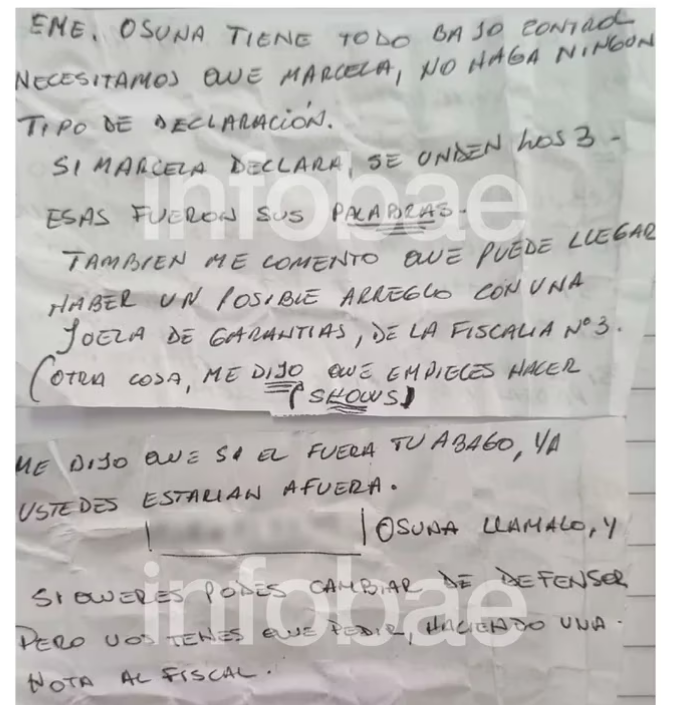 EME. OSUNA TIENE TODO BAJO CONTROL
NECESITAMOS QUE MARCELA, NO HAGA NINGUN
TIPO DE DECLARACIÓN.
SI MARCELA DECLARA, SE UNDEN LOS 3 -
ESAS FUERON SUS PALABRAS.
TAMBIEN ME COMENTO QUE PUEDE LLEGAR
HABER UN POSIBLE ARREGLO CON UNA
JUEZA DE GARANTIAS, DE LA FISCALIA Nº3.
(OTRA COSA, ME DIJO QUE EMPIECES HACER
(SHOWS)
ME DIJO QUE SI EL FUERA TU ABAGO, YA
USTEDES ESTARIAN AFUERA.
OSUNA LLAMALO, Y
SI QUERES PODES CAMBIAR DE DEFENSOR
PERO VOS TENES QUE PEDIR, HACIENDO UNA.
NOTA AL FISCAL.
infobae
infobae